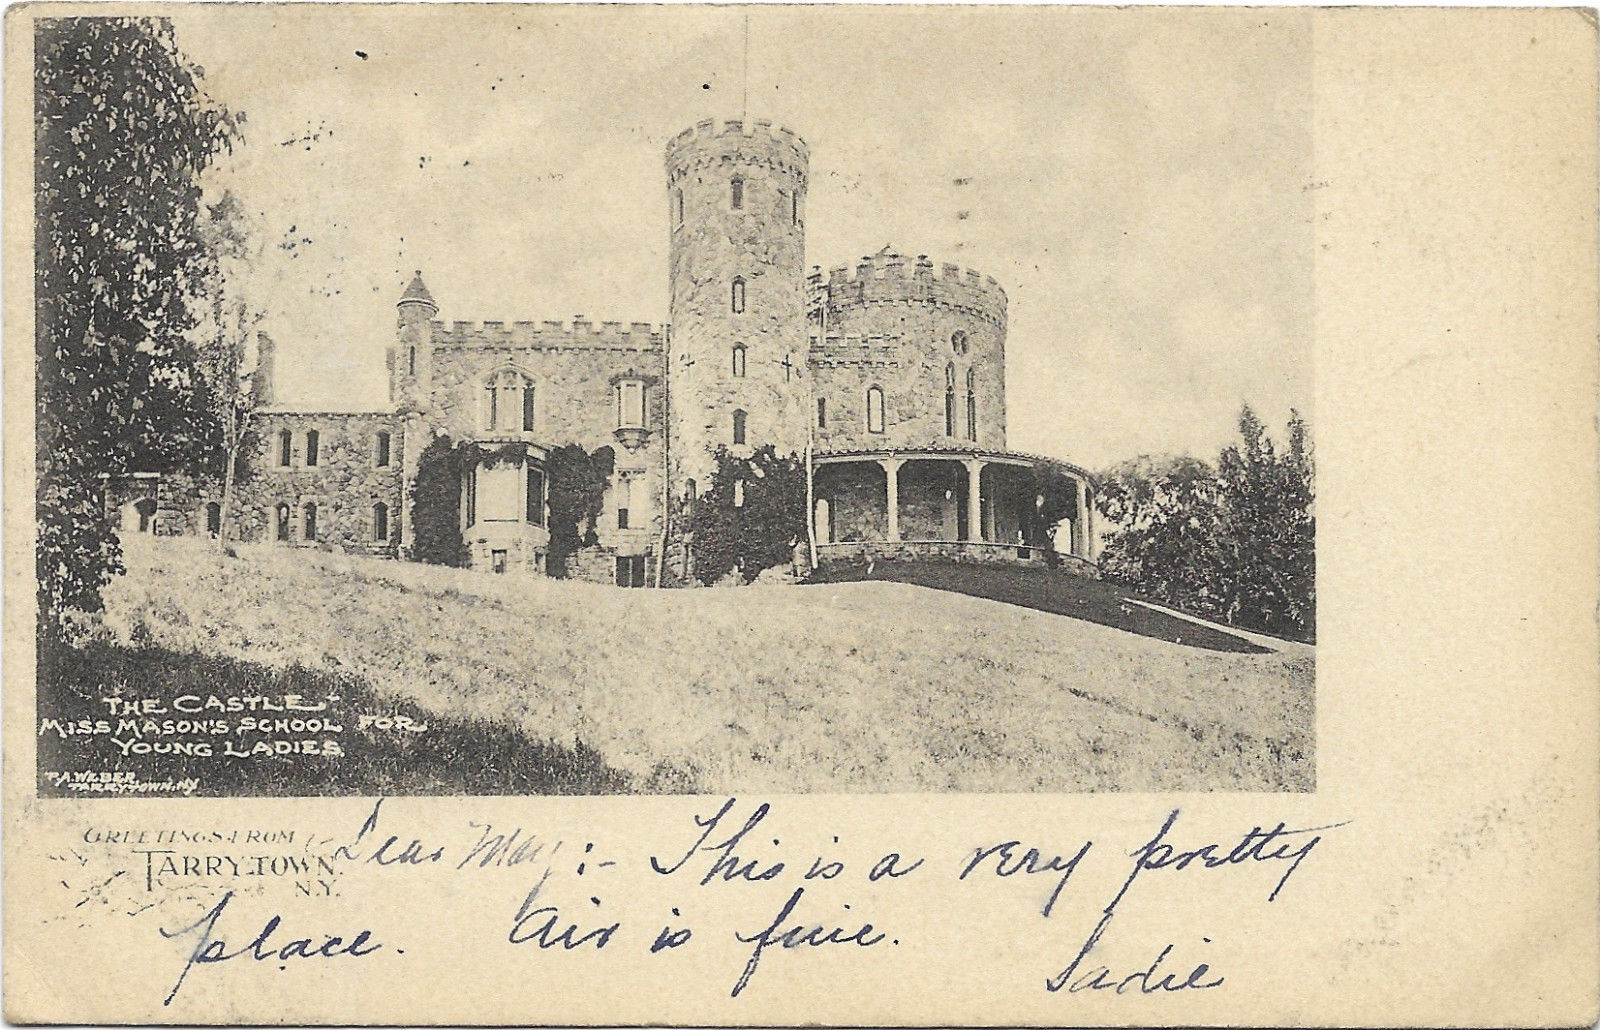 THE CASTLE
MISS MASON'S SCHOOL FOR
YOUNG LADIES
P.A. WEBER
TARRYTOWN. NY
GREETINGS FROM
TARRYTOWN.
N.Y.
Dear May:- This is a very pretty
place. Air is fine.
Sadie